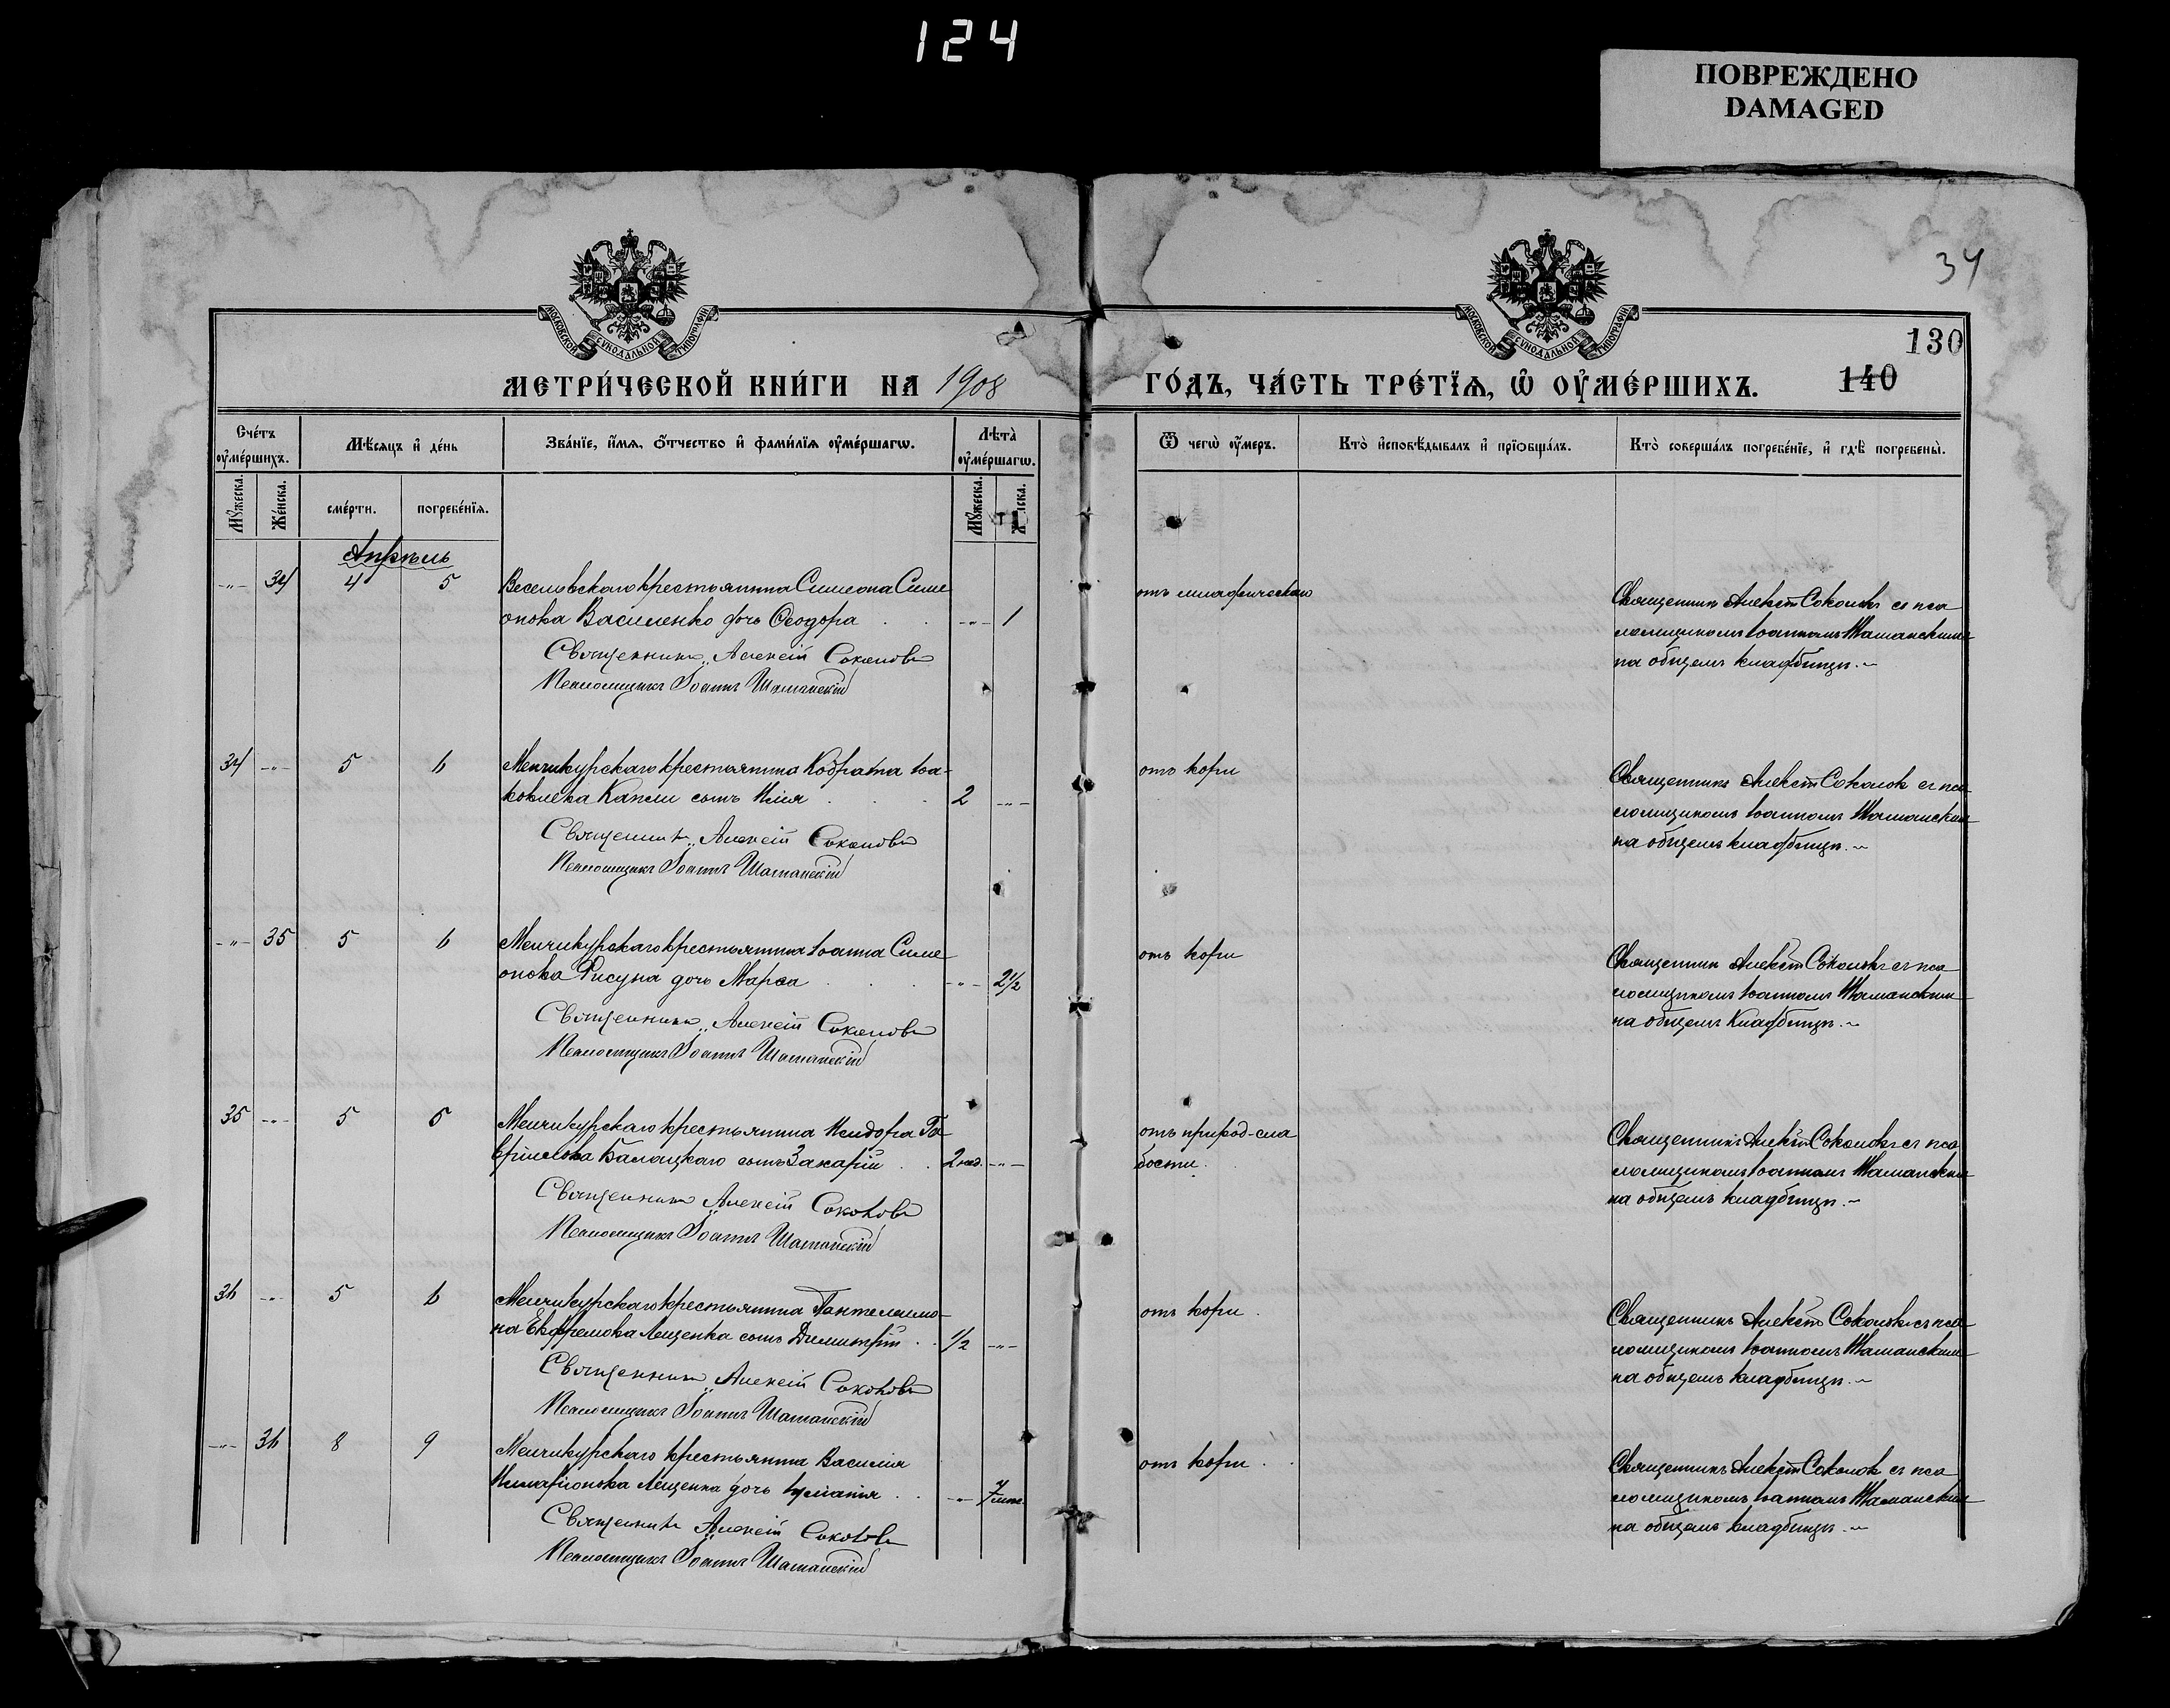 124
ПОВРЕЖДЕНО
DAMAGED
34
130
140
МОСКОВСКОЙ СѴНОДАЛЬНОЙ ТИПОГРАФІИ
МОСКОВСКОЙ СѴНОДАЛЬНОЙ ТИПОГРАФІИ
МЕТРИ́ЧЕСКОЙ КНИ́ГИ НА 1908
ГО́ДЪ, ЧА́СТЬ ТРЕ́ТЇѦ, Ѡ҆ ОУ҆МЕ́РШИХЪ.
Сче́тъ оу҆ме́ршихъ.
Мѣ́сяцъ и҆ де́нь
Зва́нїе, и҆́мѧ, ѻ҆́тчество и҆ фами́лїѧ оу҆ме́ршагѡ.
Лѣта̀ оу҆ме́ршагѡ.
Ѿ чегѡ̀ оу҆́меръ.
Кто̀ и҆сповѣ́дывалъ и҆ прїѻбща́лъ.
Кто̀ соверша́лъ погребе́нїе, и҆ гдѣ̀ погребены̀.
Мꙋ́жеска.
Же́нска.
сме́рти.
погребе́нїѧ.
Мꙋ́жеска.
Апрѣль
-„- 34 4 5 Веселовскаго крестьянина Симеона Симе
онова Василенко дочь Ѳеодора -„- 1
Священникъ Алексій Соколовъ
Псаломщикъ Іоаннъ Шаманскій
отъ младенческаго
Священникъ Алексій Соколовъ съ пса
ломщикомъ Іоанномъ Шаманскимъ
на общемъ кладбищѣ.~
34 -„- 5 6 Менчикурскаго крестьянина Кодрата Іа-
ковлева Капли сынъ Илія 2 -„-
Священникъ Алексій Соколовъ
Псаломщикъ Іоаннъ Шаманскій
отъ кори
Священникъ Алексій Соколовъ съ пса
ломщикомъ Іоанномъ Шаманскимъ
на общемъ кладбищѣ.~
-„- 35 5 6 Менчикурскаго крестьянина Іоанна Симе
онова Рисуна дочь Марѳа -„- 2½
Священникъ Алексій Соколовъ
Псаломщикъ Іоаннъ Шаманскій
отъ кори
Священникъ Алексій Соколовъ съ пса
ломщикомъ Іоанномъ Шаманскимъ
на общемъ кладбищѣ.~
35 -„- 5 6 Менчикурскаго крестьянина Исидора Га
вріилова Балацкаго сынъ Захарій 2 нед. -„-
Священникъ Алексій Соколовъ
Псаломщикъ Іоаннъ Шаманскій
отъ природ-сла
бости.
Священникъ Алексій Соколовъ съ пса
ломщикомъ Іоанномъ Шаманскимъ
на общемъ кладбищѣ.~
36 -„- 5 6 Менчикурскаго крестьянина Пантелеимо-
на Евфремова Лещенка сынъ Димитрій ½ -„-
Священникъ Алексій Соколовъ
Псаломщикъ Іоаннъ Шаманскій
отъ кори
Священникъ Алексій Соколовъ съ пса
ломщикомъ Іоанномъ Шаманскимъ
на общемъ кладбищѣ.~
-„- 36 8 9 Менчикурскаго крестьянина Василія
Иларіонова Лещенка дочь Іуліанія -„-
Священникъ Алексій Соколовъ
Псаломщикъ Іоаннъ Шаманскій
отъ кори
Священникъ Алексій Соколовъ съ пса
ломщикомъ Іоанномъ Шаманскимъ
на общемъ кладбищѣ.~